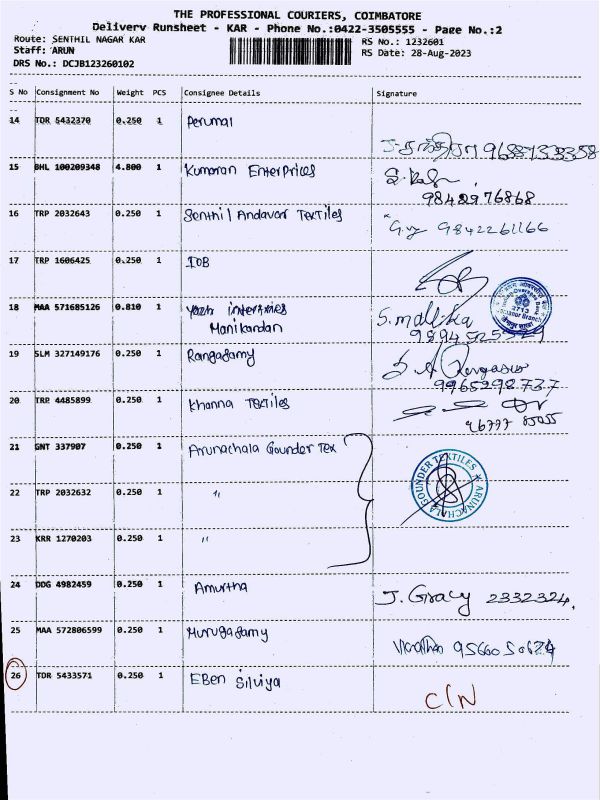 THE PROFESSIONAL COURIERS, COIMBATORE
Delivery Runsheet - KAR - Phone No.:0422-3505555 - Page No.:2
Route: SENTHIL NAGAR KAR
Staff: ARUN
DRS No.: DCJB123260102
RS No.: 1232601
RS Date: 28-Aug-2023
S No Consignment No Weight PCS Consignee Details Signature
14 TDR 5432370 0.250 1 Perumal
9688733358
15 BHL 100209348 4.800 1 Kumaran Enterprices
9842976868
16 TRP 2032643 0.250 1 Senthil Andavar Textiles 9842261166
17 TRP 1606425 0.250 1 IOB
2713
18 MAA 571685126 0.810 1
Manikandan
S. mallika
19 SLM 327149176 0.250 1 Rangasamy
9965298737
20 TRP 4485899 0.250 1 Khanna Textiles
21 GNT 337907 0.250 1 Arunachala Gounder Tex
ARUNACHALA GOUNDER TEXTILES
22 TRP 2032632 0.250 1 "
23 KRR 1270203 0.250 1 "
24 DDG 4982459 0.250 1 Amurtha J. Gracy 2332324.
25 MAA 572806599 0.250 1 Murugasamy
26 TDR 5433571 0.250 1 EBen Silviya
C/N